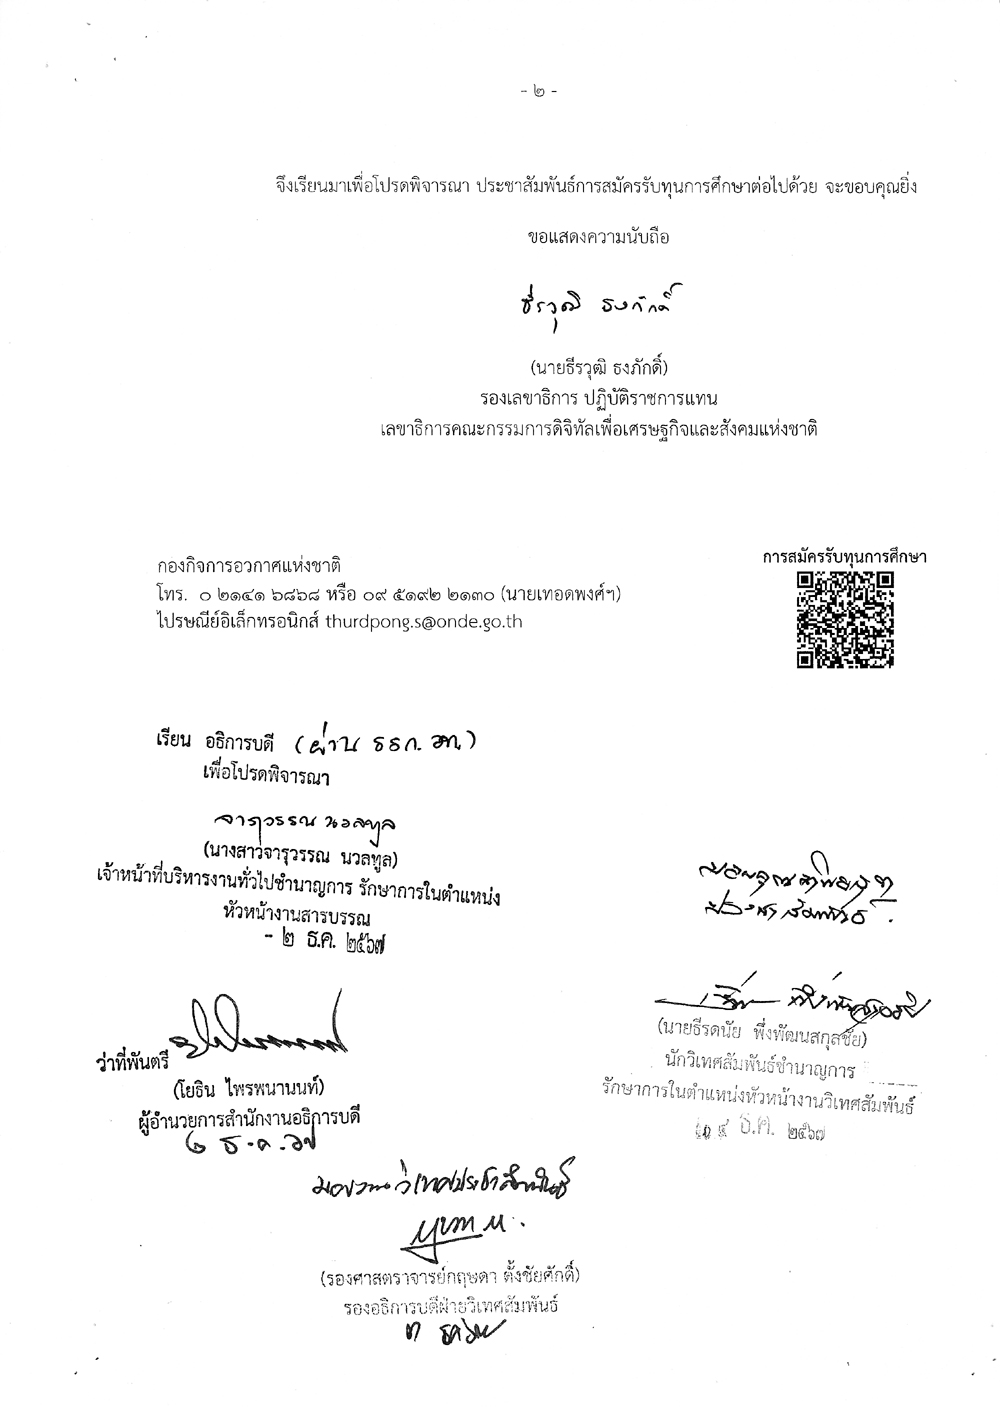 - ๒ -
จึงเรียนมาเพื่อโปรดพิจารณา ประชาสัมพันธ์การสมัครรับทุนการศึกษาต่อไปด้วย จะขอบคุณยิ่ง
ขอแสดงความนับถือ
ธีรวุฒิ ธงภักดิ์
(นายธีรวุฒิ ธงภักดิ์)
รองเลขาธิการ ปฏิบัติราชการแทน
เลขาธิการคณะกรรมการดิจิทัลเพื่อเศรษฐกิจและสังคมแห่งชาติ
กองกิจการอวกาศแห่งชาติ
โทร. ๐ ๒๑๔๑ ๖๘๖๘ หรือ ๐๙ ๕๑๙๒ ๒๑๓๐ (นายเทอดพงศ์ฯ)
ไปรษณีย์อิเล็กทรอนิกส์ thurdpong.s@onde.go.th
การสมัครรับทุนการศึกษา
เรียน อธิการบดี (ผ่าน รธก. วท.)
เพื่อโปรดพิจารณา
จารุวรรณ นวลทูล
(นางสาวจารุวรรณ นวลทูล)
เจ้าหน้าที่บริหารงานทั่วไปชำนาญการ รักษาการในตำแหน่ง
หัวหน้างานสารบรรณ
- ๒ ธ.ค. ๒๕๖๗
ว่าที่พันตรี
(โยธิน ไพรพนานนท์)
ผู้อำนวยการสำนักงานอธิการบดี
๒ ธ.ค. ๖๗
(นายธีรดนัย พึ่งพัฒนสกุลชัย)
นักวิเทศสัมพันธ์ชำนาญการ
รักษาการในตำแหน่งหัวหน้างานวิเทศสัมพันธ์
๔ ธ.ค. ๒๕๖๗
มอบงานวิเทศประชาสัมพันธ์
(รองศาสตราจารย์กฤษดา ตั้งชัยศักดิ์)
รองอธิการบดีฝ่ายวิเทศสัมพันธ์
๓ ธค ๖๗